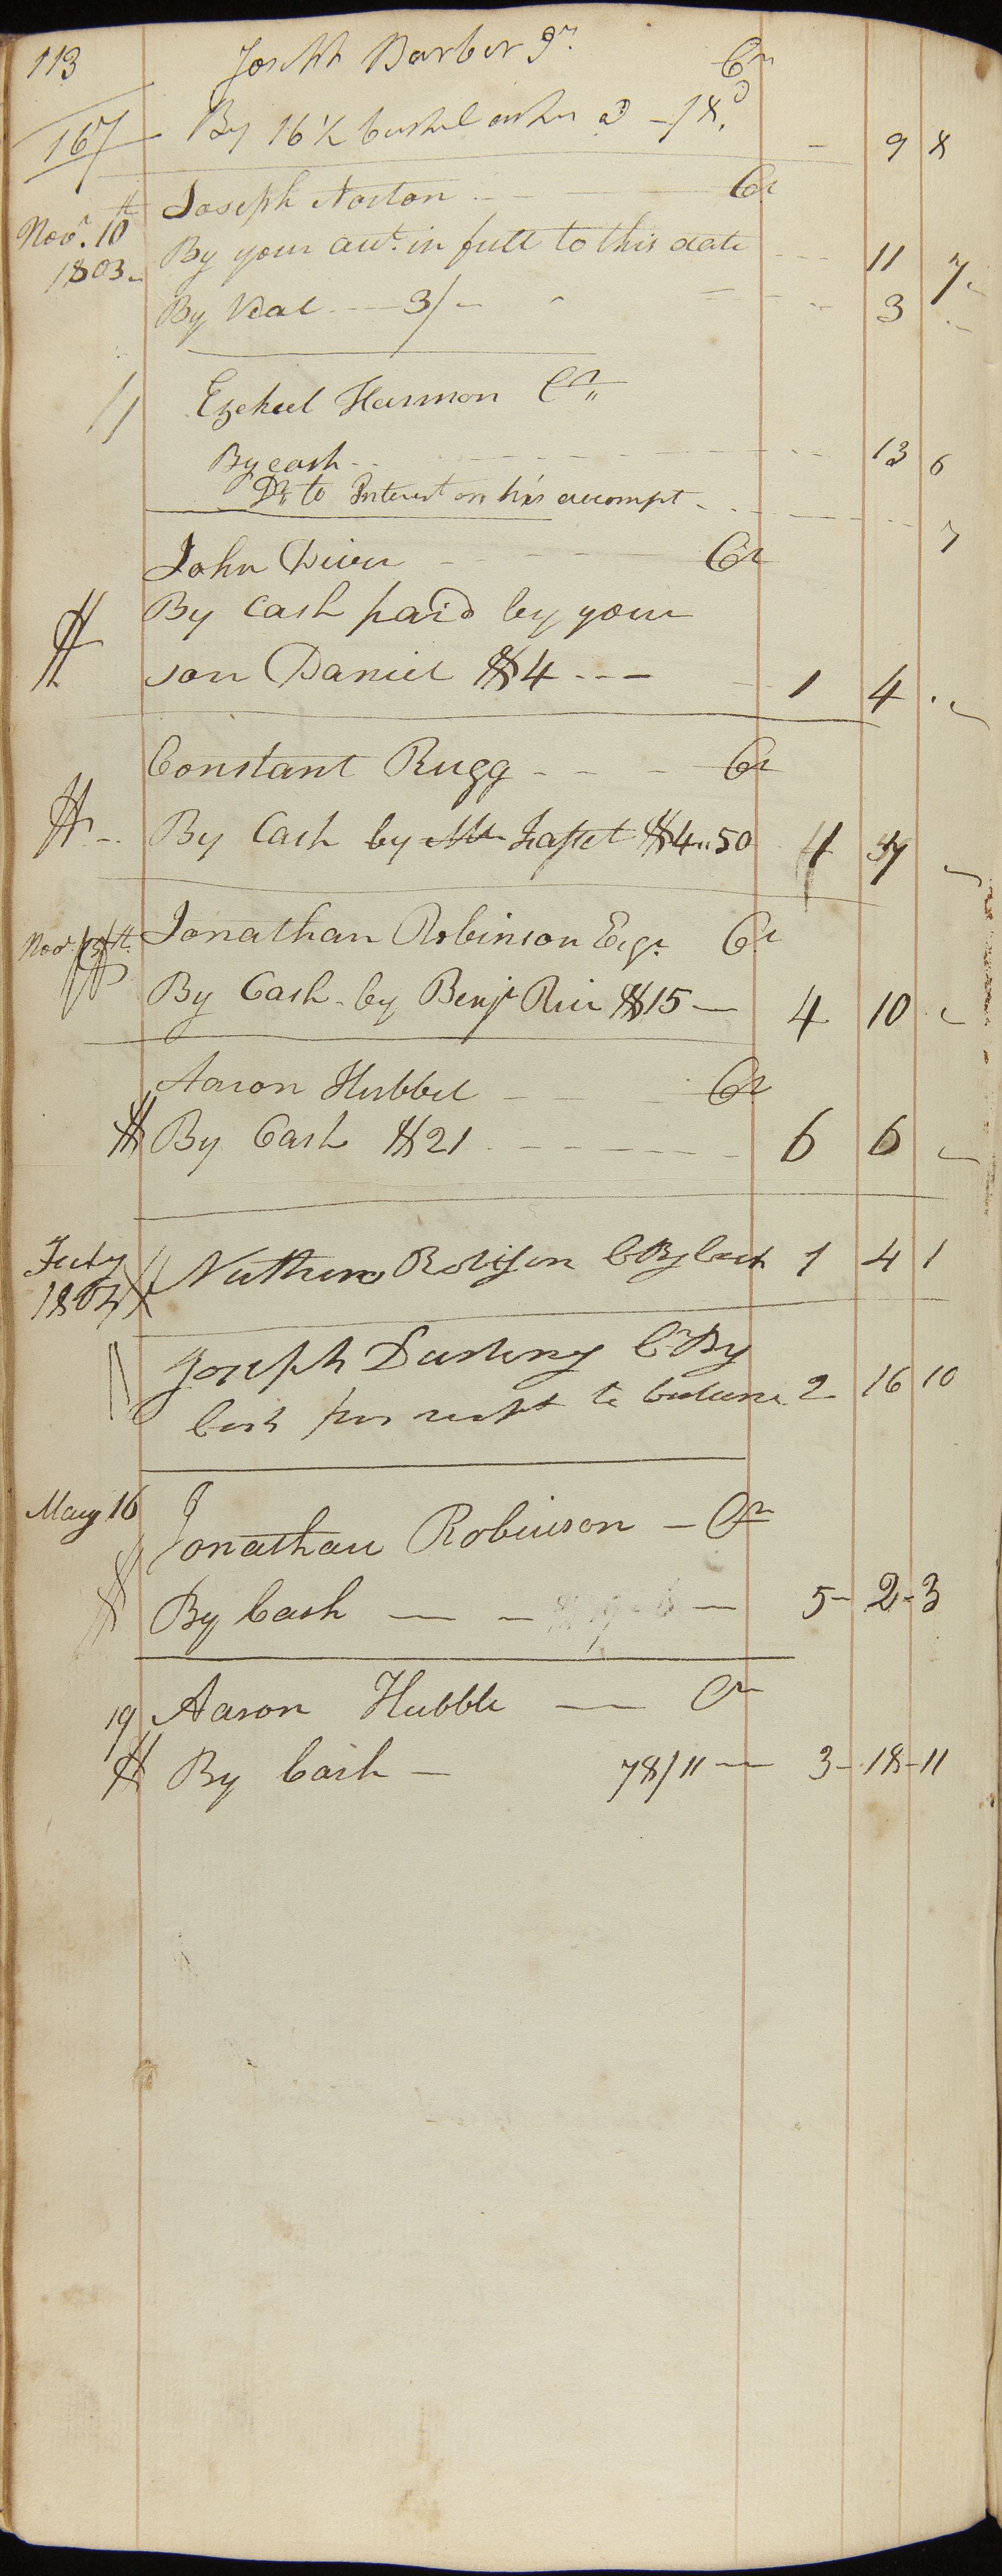 113 Joseph Barber Jr. Cr
167 By 16½ bushel ashes @ -/8d. - 9 8
Joseph Norton Cr
Novr. 10th By your act. in full to this date 11 7
1803
By Veal 3/- 3
Ezekiel Harmon Cr
By cash 13 6
Dr to Interest on his accompt 7
John Cr
By Cash paid by your
son Daniel $4 --- 1 4
Constant Rugg Cr
By Cash by $4..50 1 7
Novr. Jonathan Robinson Esqr. Cr
By Cash by Benjn $15 — 4 10
Aaron Hubbel Cr
By Cash $21 6 6
July Cr By Cash 1 4 1
1804
Joseph Cr By
Cash per 2 16 10
May 16 Jonathan Robinson — Cr
By Cash — — 5-2-3
19 Aaron Hubble — Cr
By Cash — 78/11 — 3-18-11